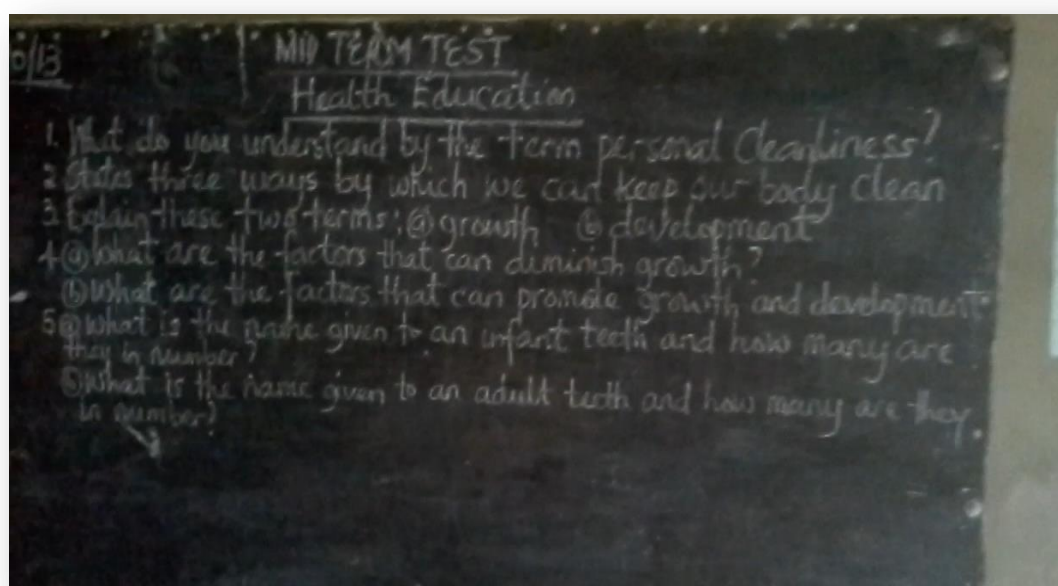 6/13
MID TERM TEST
Health Education
1. What do you understand by the term personal Cleanliness?
2 States three ways by which we can keep our body clean
3 Explain these two terms; (a) growth (b) development
4 (a) What are the factors that can diminish growth?
(b) What are the factors that can promote growth and development
5 (a) What is the name given to an infant teeth and how many are
they in number?
(b) What is the name given to an adult teeth and how many are they
in number?